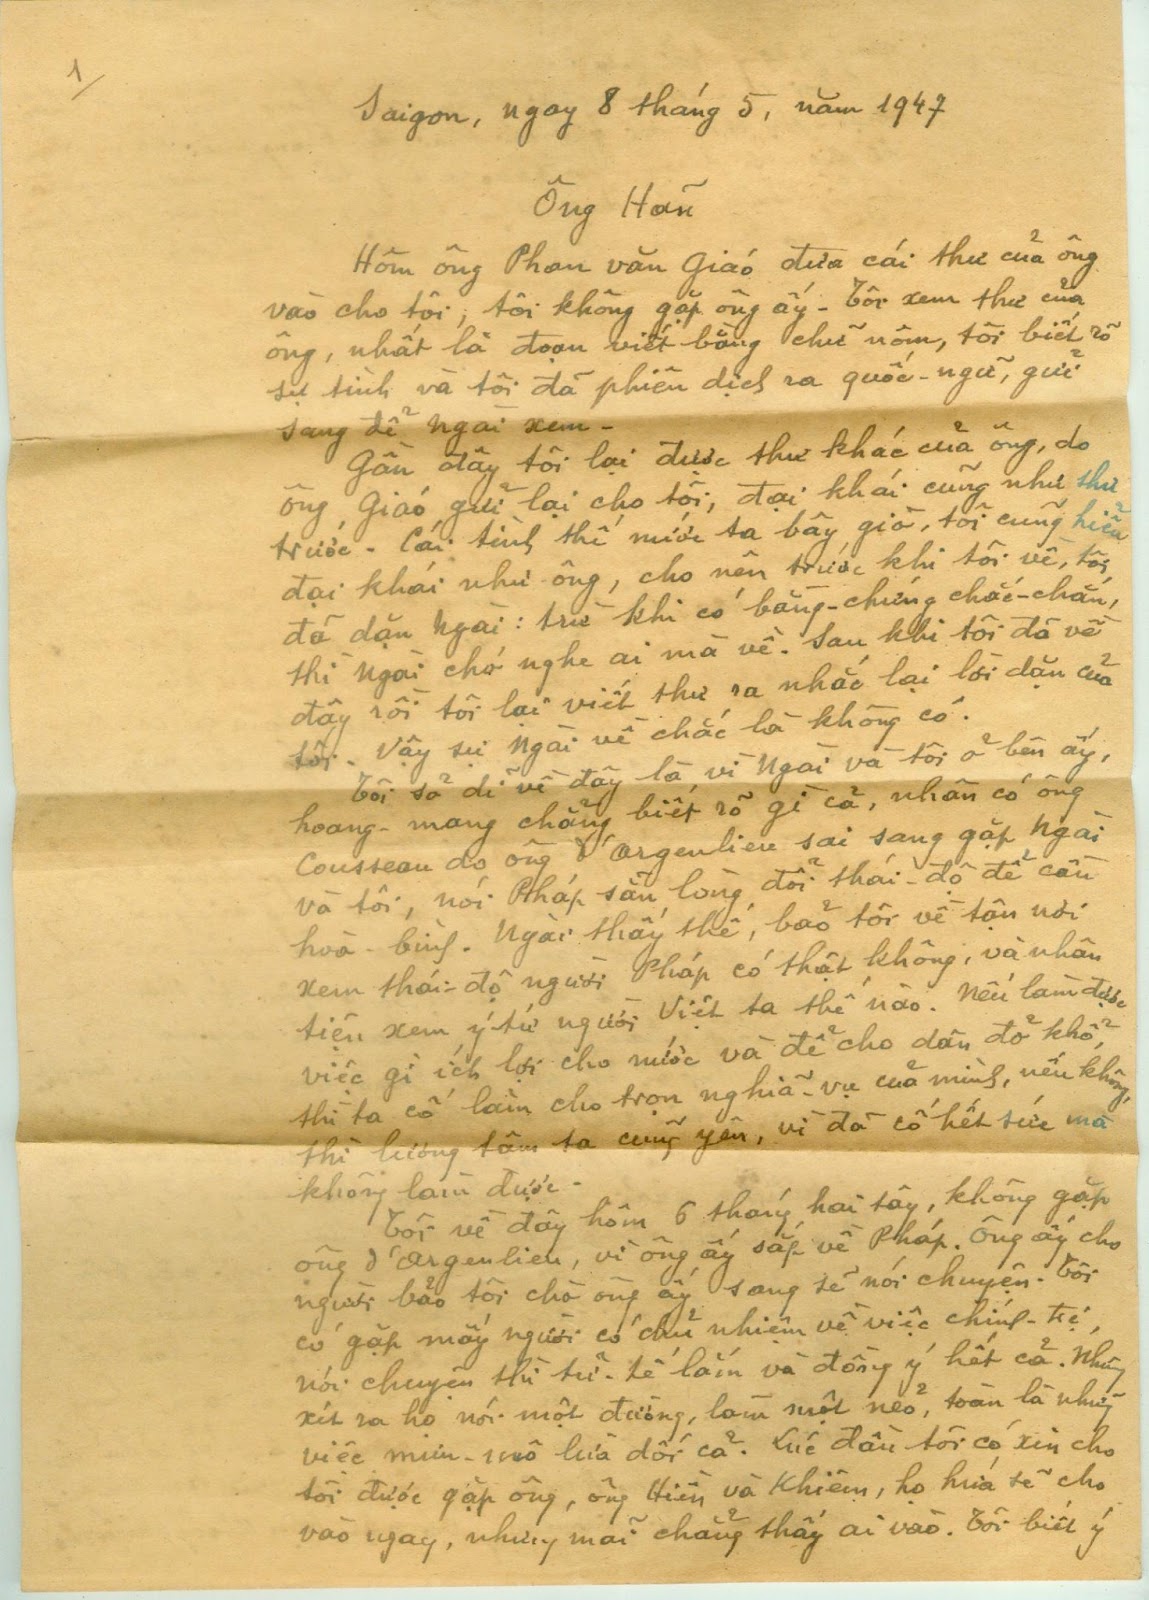 1/
Saigon, ngay 8 tháng 5, năm 1947
Ông Hãn
Hôm ông Phan văn Giáo đưa cái thư của ông
vào cho tôi, tôi không gặp ông ấy - Tôi xem thư của
ông, nhất là đoạn viết bằng chữ nôm, tôi biết rõ
sự tình và tôi đã phiên dịch ra quốc-ngữ, gửi
sang để Ngài xem -
Gần đây tôi lại được thư khác của ông, do
ông Giáo gửi lại cho tôi, đại khái cũng như thư
trước - Cái tình thế nước ta bây giờ, tôi cũng hiểu
đại khái như ông, cho nên trước khi tôi về, tôi
đã dặn Ngài: trừ khi có bằng-chứng chắc-chắn,
thì Ngài chớ nghe ai mà về. Sau khi tôi đã về
đây rồi tôi lại viết thư ra nhắc lại lời dặn của
tôi. Vậy sự Ngài về chắc là không có.
Tôi sở dĩ về đây là vì Ngài và tôi ở bên ấy,
hoang-mang chẳng biết rõ gì cả, nhân có ông
Cousseau do ông d'Argenlieu sai sang gặp Ngài
và tôi, nói Pháp sẵn lòng đổi thái-độ để cần
hoà-bình. Ngài thấy thế, bảo tôi về tận nơi
xem thái-độ người Pháp có thật không, và nhân
tiện xem ý-tứ người Việt ta thế nào. Nếu làm được
việc gì ích lợi cho nước và để cho dân đỡ khổ,
thì ta cố làm cho trọn nghĩa-vụ của mình, nếu không,
thì lương tâm ta cũng yên, vì đã cố hết sức mà
không làm được -
Tôi về đây hôm 6 tháng hai tây, không gặp
ông d'Argenlieu, vì ông ấy sắp về Pháp. Ông ấy cho
người bảo tôi chờ ông ấy sang sẽ nói chuyện. Tôi
có gặp mấy người có chủ nhiệm về việc chính-trị,
nói chuyện thì tử-tế lắm và đồng ý hết cả. Nhưng
xét ra họ nói một đường, làm một nẻo, toàn là những
việc mưu-mô lừa dối cả. Lúc đầu tôi có xin cho
tôi được gặp ông, ông Hiền và Khiêm, họ hứa sẽ cho
vào ngay, nhưng mãi chẳng thấy ai vào. Tôi biết ý